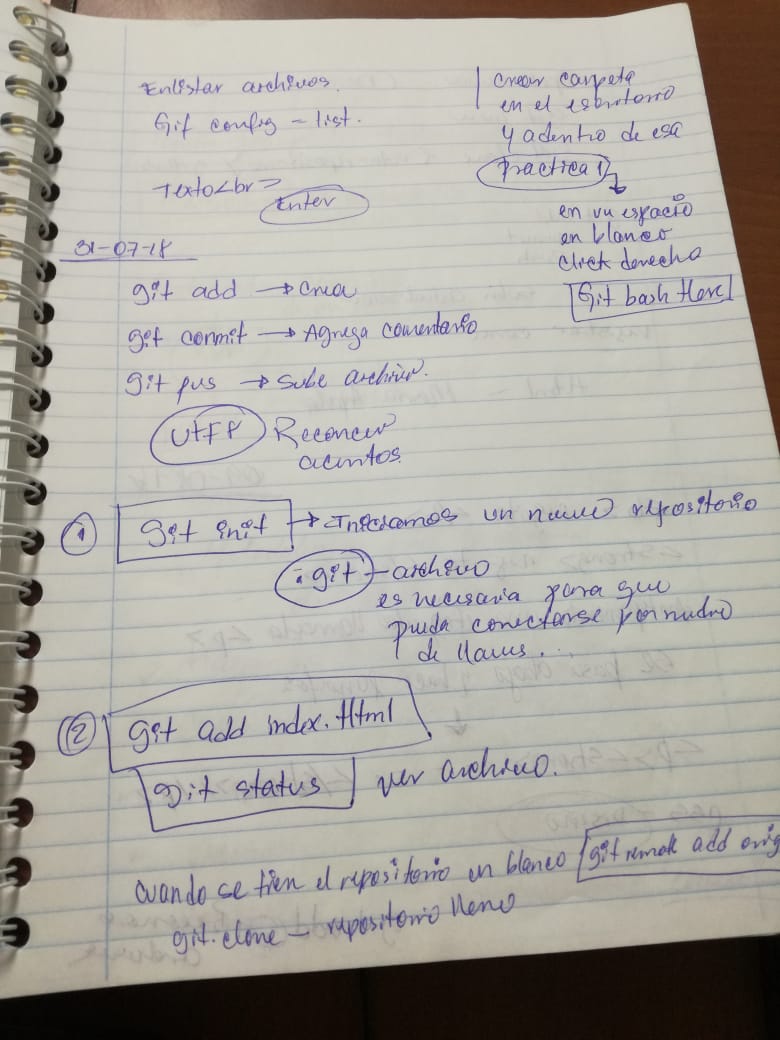 Enlistar archivos.
Git config - list.
Texto<br>
Enter
crear carpeta
en el escritorio
y adentro de esa
Practica 1
en un espacio
en blanco
click derecho
Git bash Here
31-07-18
git add → Crea
git commit → Agrega comentario
git pus → Sube archivo.
UTF8 Reconcer
acentos.
① git init → Iniciamos un nuevo repositorio
.git - archivo
es necesaria para que
pueda conectarse por medio
de llaves...
② git add index.Html
Git status ver archivo.
cuando se tien el repositorio en blanco git remote add orig
git clone - repositorio lleno